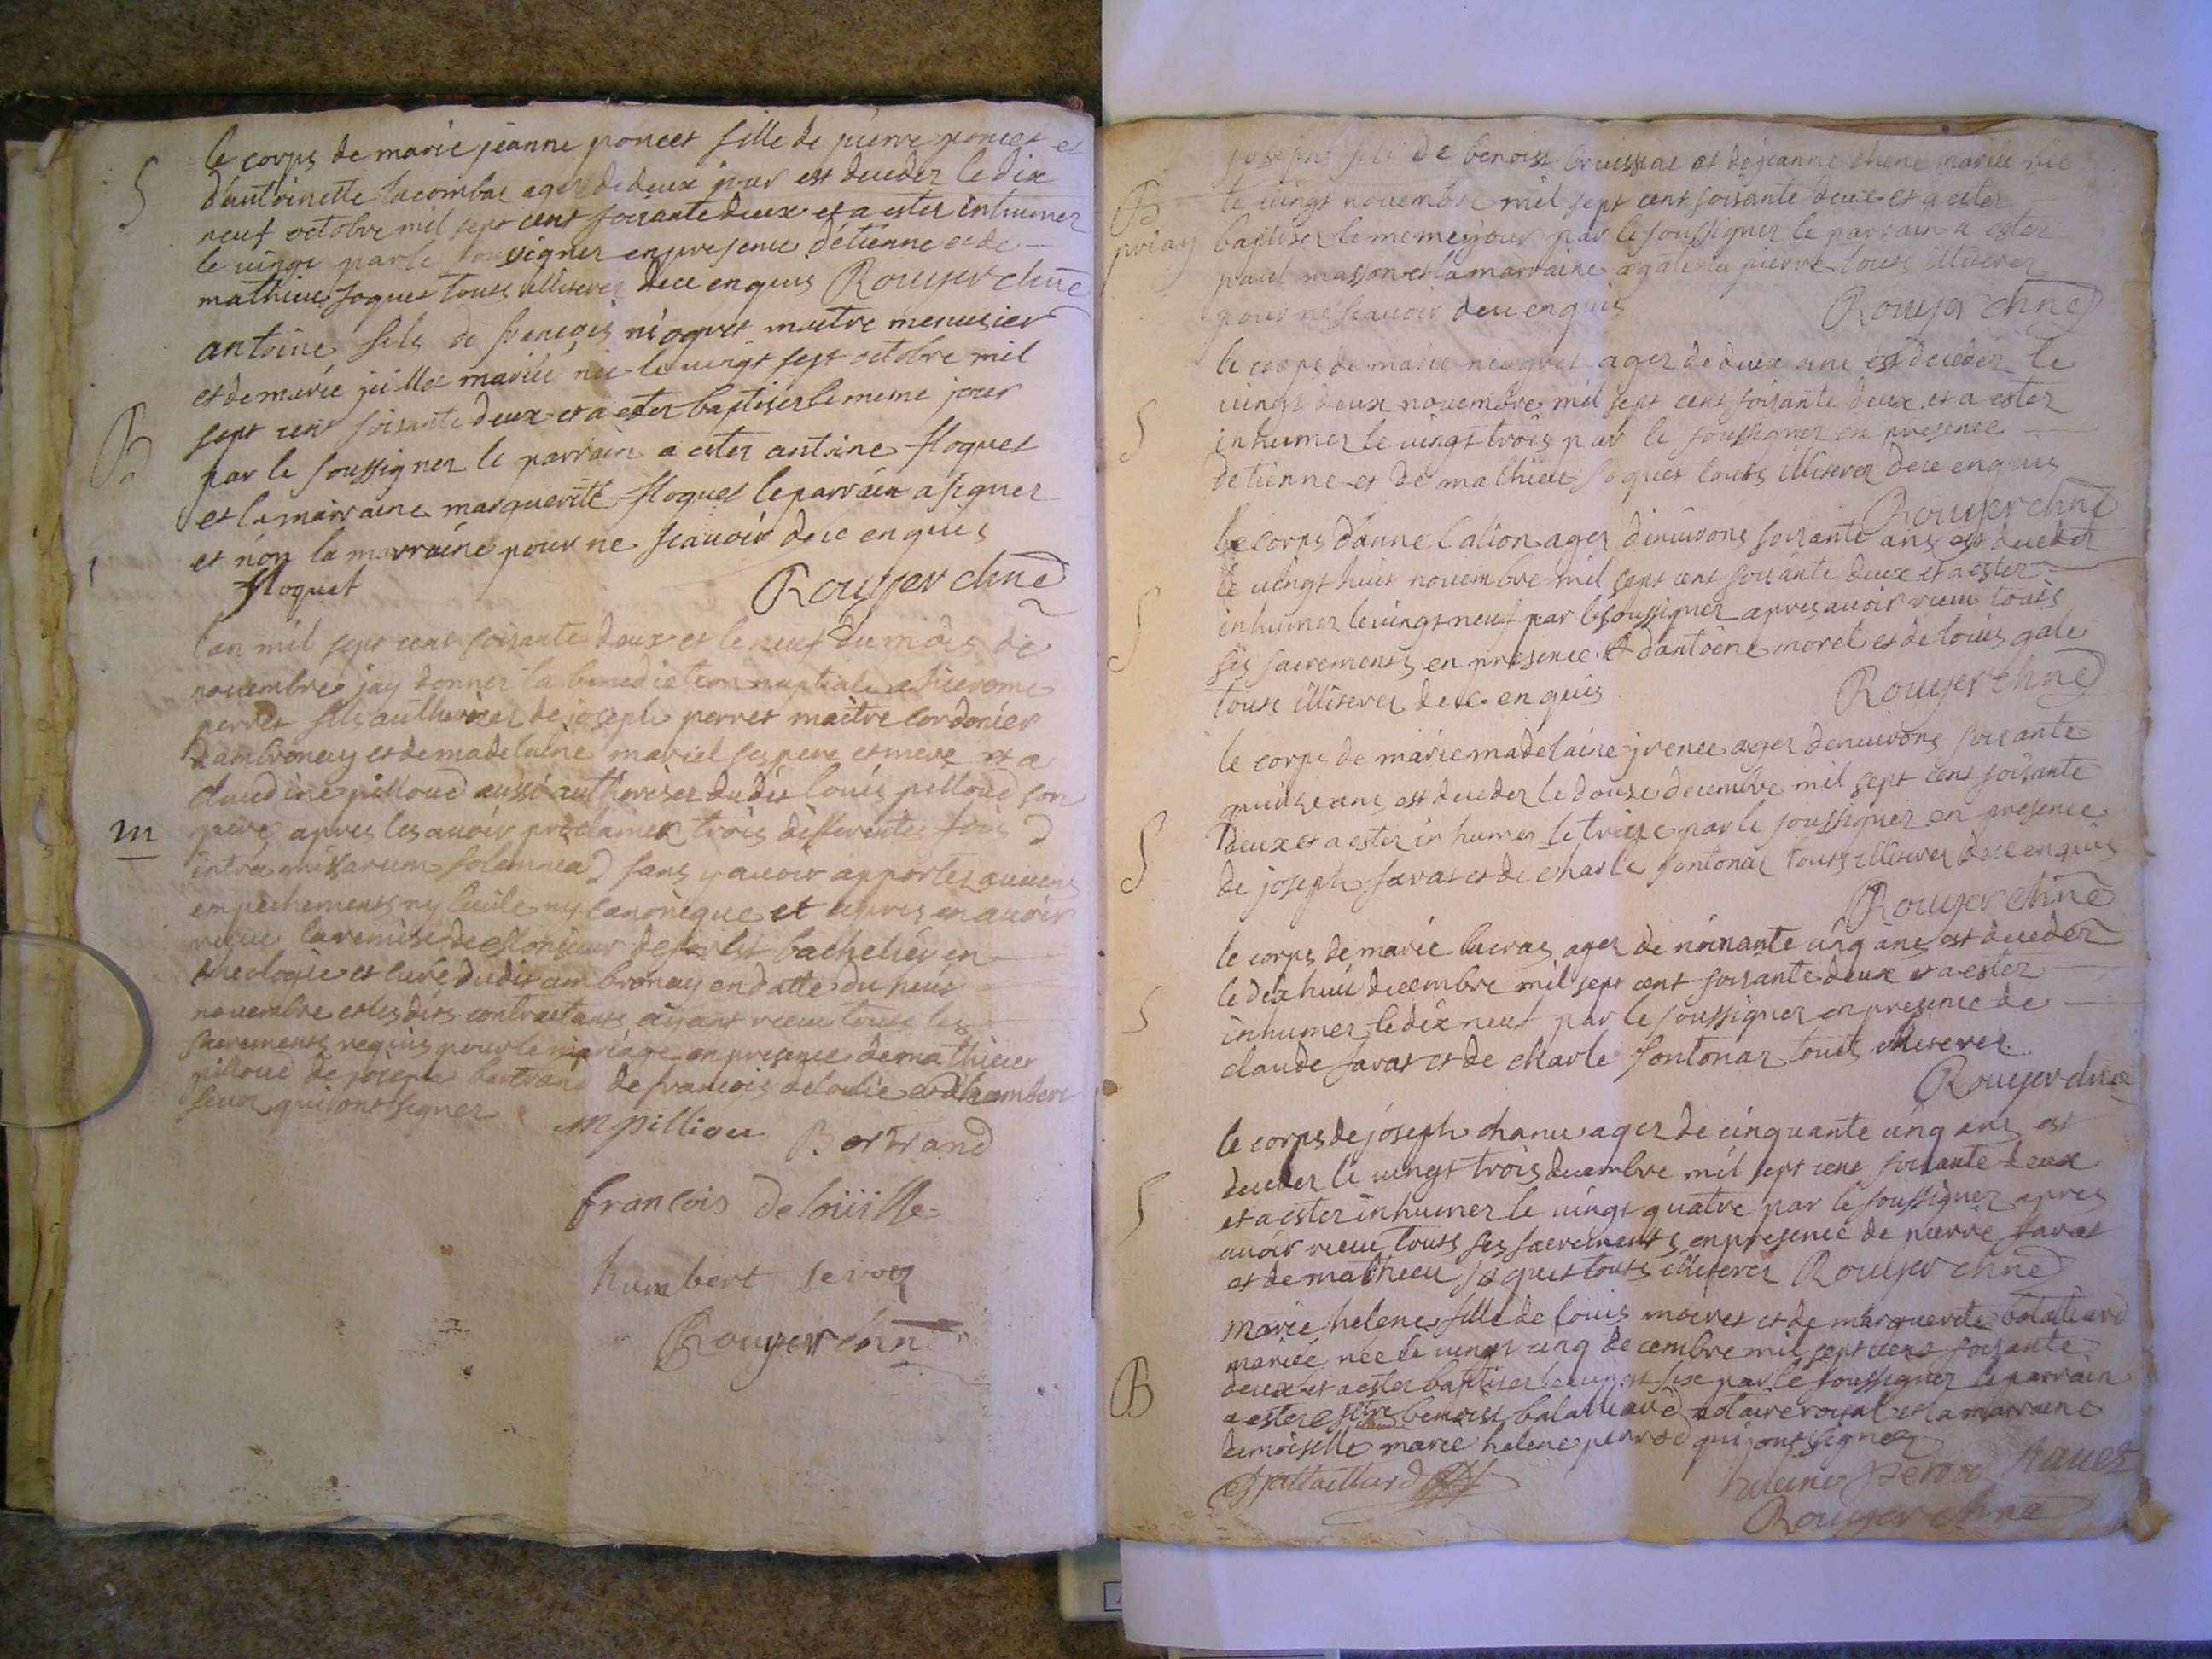 S
le corps de marie jeanne poncet fille de pierre poncet et
d'antoinette lacombe ager de deux jour est deceder le dix
neuf octobre mil sept cent soisante deux et a ester inhumer
le vingt par le soussigner en presence d'étienne et de
mathieu foquet touts illiterer de ce enquis Rouyer chne
B
antoine fils de françois nioquet maitre menusier
et de marie juillet mariié née le vingt sept octobre mil
sept cent soisante deux et a ester baptiser le meme jour
par le soussigner le parrain a ester antoine floquet
et la marraine margueritte floquet le parrain a signer
et non la marraine pour ne scauoir de ce enquis
floquet Rouyer chne
m
l'an mil sept cent soisante deux et le neuf du mois de
nouembre jay donner la benediction nuptiale a hierome
perret fils authoriser de joseph perret maitre cordonier
d'ambronay et de madelaine mariel ses pere et mere et a
claudine pilloud aussi authoriser dudit louis pilloud son
pere apres les auoir proclamer trois differentes fois
intra missarum solemnea sans y auoir apporter aucuns
empechements ny ciuile ny canonique et apres en auoir
receu la remise de Monsieur bachelier en
theologie et curé dudit ambronay en datte du neuf
nouembre et les dits contractants ayant receu touts les
sacrements requis pour le mariage en presence de mathieu
pilloud de joseph bertrand de françois deloulle et d'humbert
seuoz qui ont signer
m pilliou Bertrand
francois delouille
humbert sevoz
Rouyer chne
B
priay
joseph fils de benoist bruissiat et de jeanne chene mariée née
le vingt nouembre mil sept cent soisante deux et a ester
baptiser le meme jour par le soussigner le parrain a ester
paul masson et la marraine agathe pierre touts illiterer
pour ne scauoir de ce enquis Rouyer chne
S
le corps de marie nioquet ager de deux ans est deceder le
vingt deux nouembre mil sept cent soisante deux et a ester
inhumer le vingt trois par le soussigner en presence
d'etienne et de mathieu foquet touts illiterer de ce enquis
Rouyer chne
S
le corps d'anne lalion ager d'enuirons soisante ans est deceder
le vingt huit nouembre mil sept cent soisante deux et a ester
inhumer le vingt neuf par le soussigner apres auoir receu touts
ses sacrements en presence d'antoine morel et de louis gale
touts illiterer de ce enquis Rouyer chne
S
le corps de marie madelaine jvenee ager d'enuirons soisante
quinze ans est deceder le douze decembre mil sept cent soisante
deux et a ester inhumer le treize par le soussigner en presence
de joseph sauat et de charle fontonat touts illiterer de ce enquis
Rouyer chne
S
le corps de marie lucras ager de noinante cinq ans est deceder
le dix huit decembre mil sept cent soisante deux et a ester
inhumer le dix neuf par le soussigner en presence de
claude sauat et de charle fontonat touts illiterer
Rouyer chne
S
le corps de joseph chanu ager de cinquante cinq ans est
deceder le vingt trois decembre mil sept cent soisante deux
et a ester inhumer le vingt quatre par le soussigner apres
auoir receu touts ses sacrements en presence de pierre sauat
et de mathieu foquet touts illiterer Rouyer chne
B
marie helene fille de louis moiret et de marguerite balaliard
mariée née le vingt cinq decembre mil sept cent soisante
deux et a ester baptiser le vingt six par le soussigner le parrain
a ester benoist balalliard notaire royal et la marraine
demoiselle marie helene perrod qui ont signer
Rouyer chne